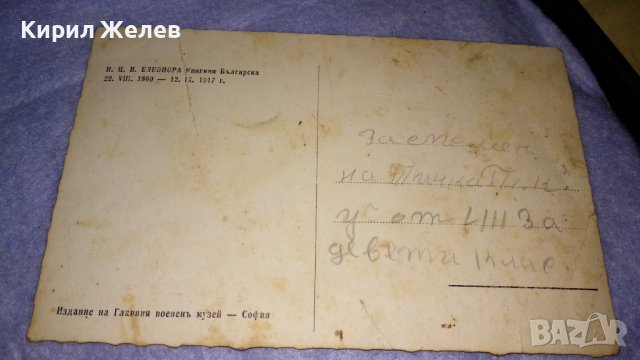 Кирил Желев
Н. Ц. В. ЕЛЕОНОРА Княгиня Българска
22. VIII. 1860 — 12. IX. 1917 г.
За спомен
на Тинка
от За
девети клас
Издание на Главния воененъ музей — София
BAZAR
bg